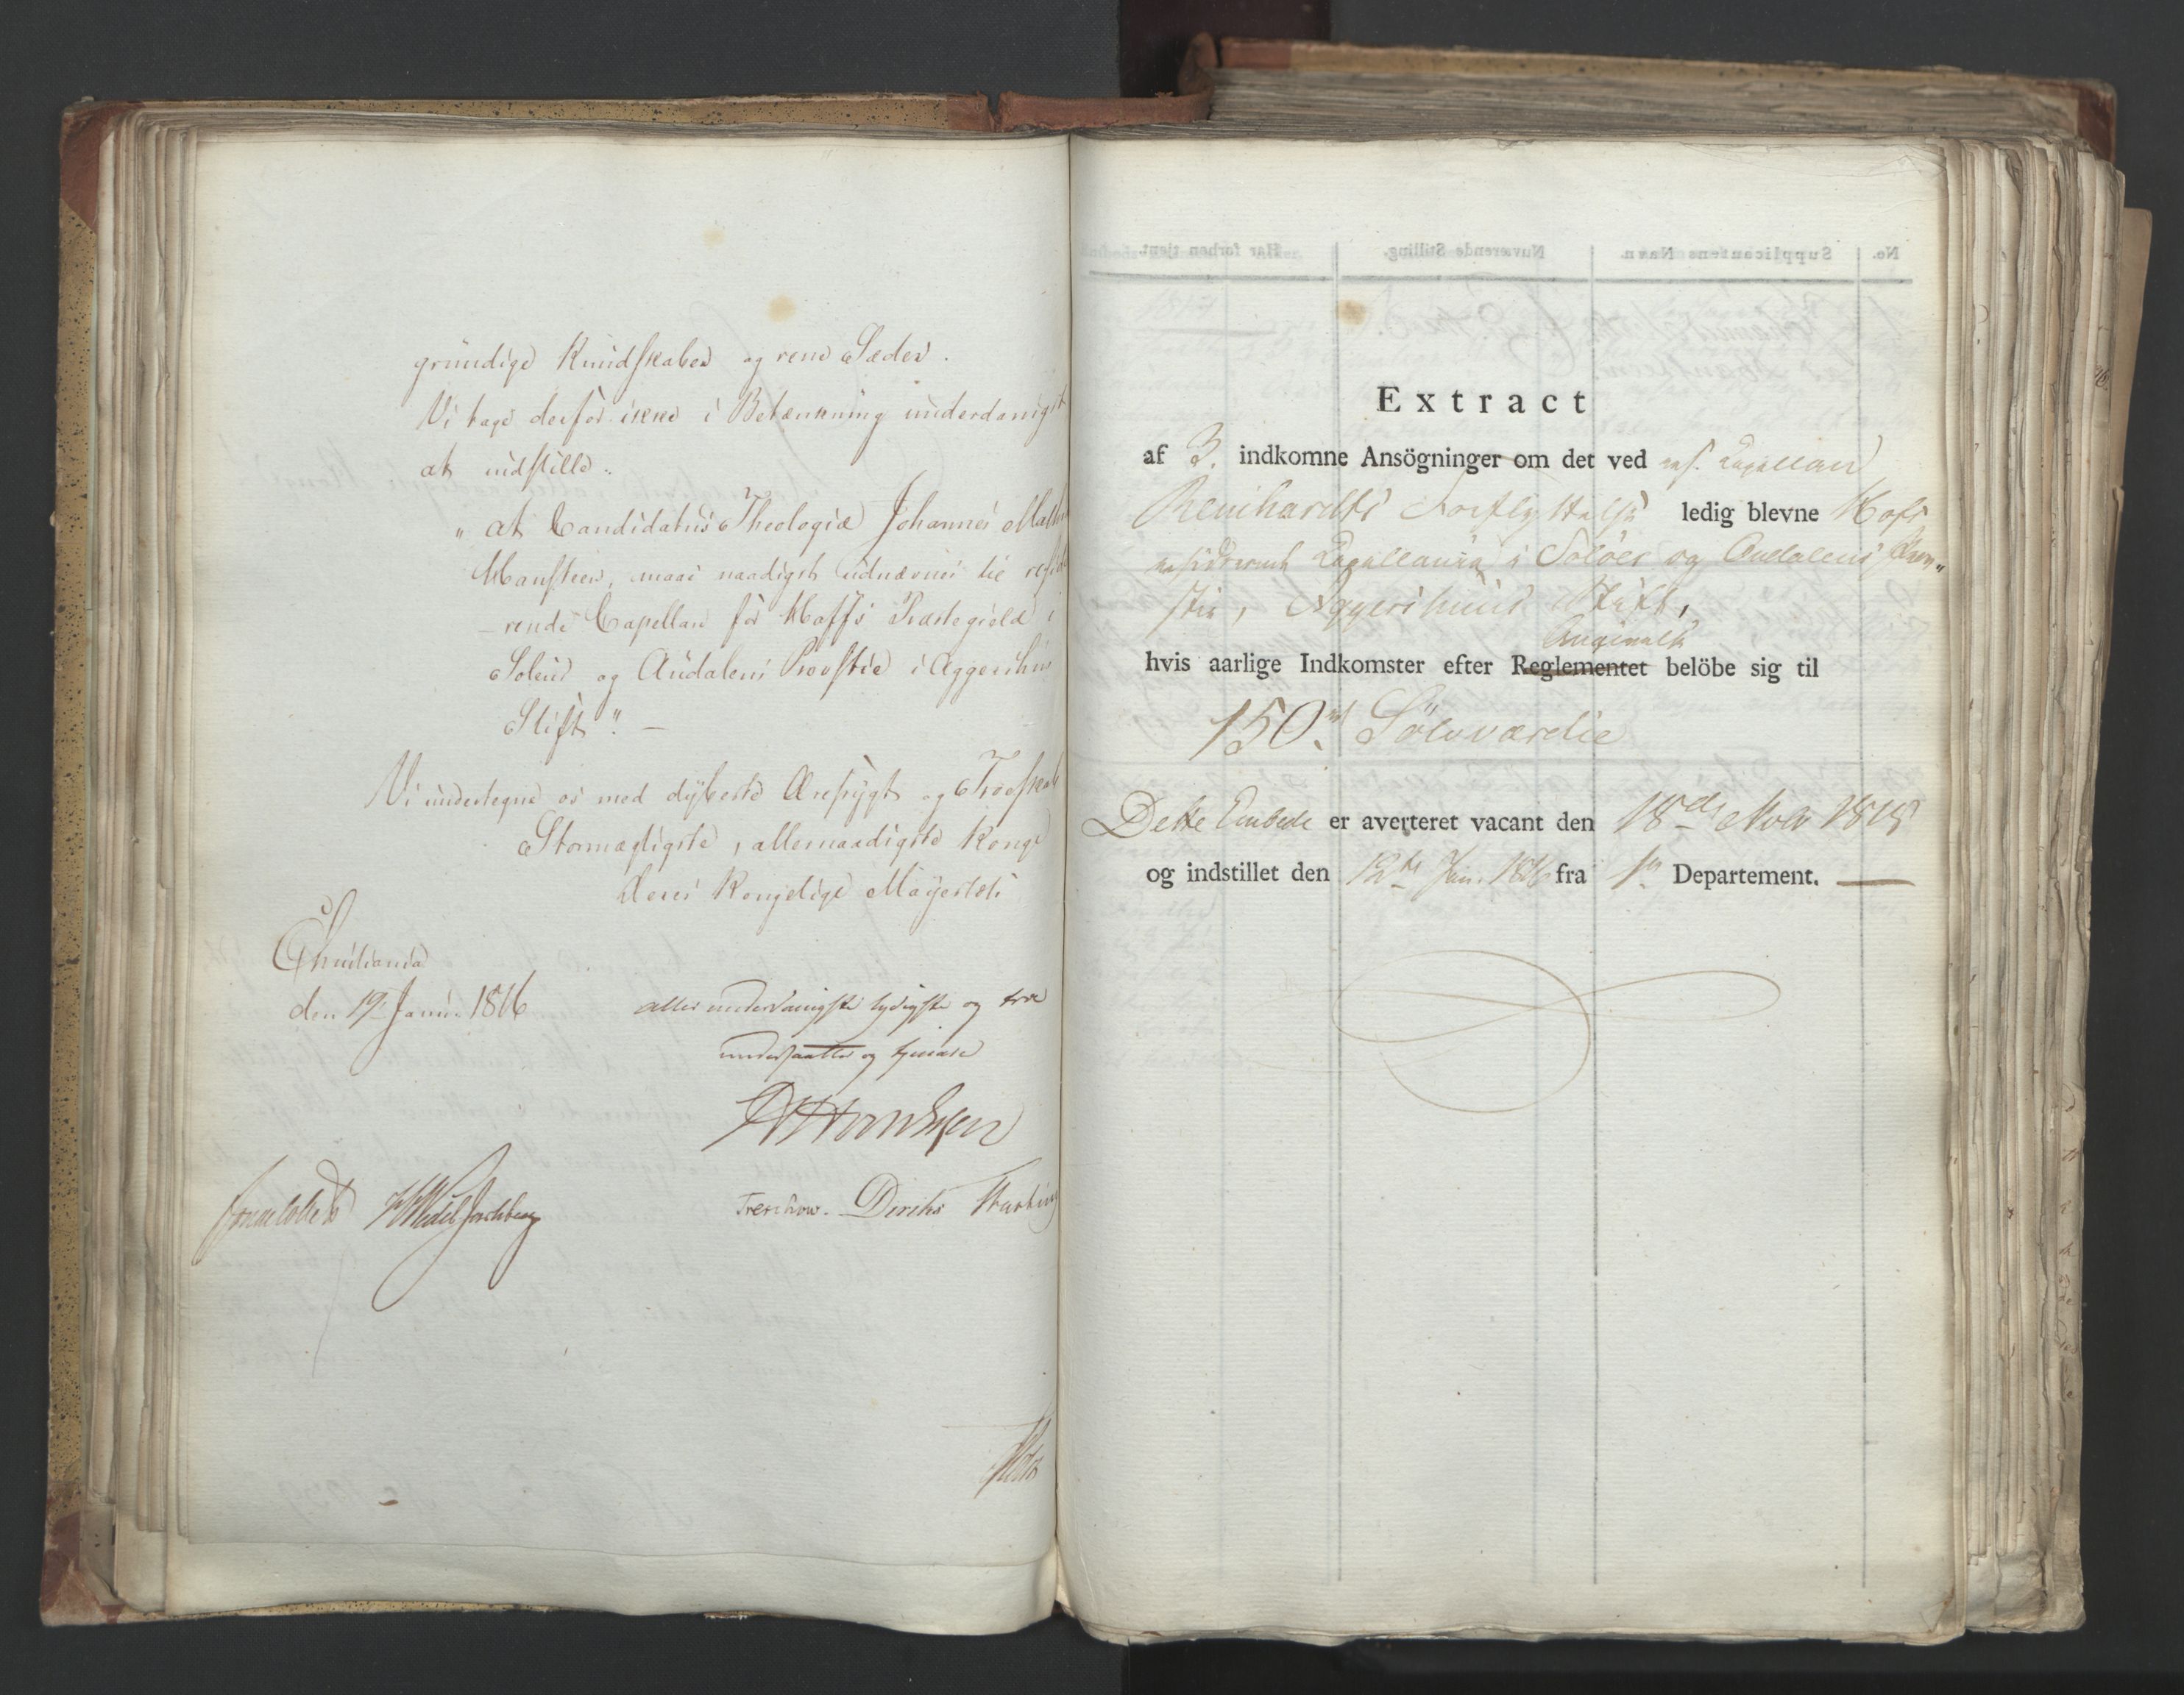 grundige Kundskaber og rene Sæder.
Vi tage derfor ikke i Betænkning underdanigst
at indstille:
" at Candidatus Theologiæ Johannes
Hansteen, maae naadigst udnævnes til resi
-rende Capellan for Hoffs Præstegield i
Soløer og Oudalens Provstie i Aggershus
Stift". —
Vi undertegne os med dybeste Ærefrygt og Troskab
Stormægtigste, allernaadigste Konge
Deres Kongelige Mayestæts
Christiania
den 19. Janur. 1816
allerunderdanigste lydigste og troe
undersaatter og tjenere
Treschow. Diriks
No. Supplicantens Navn. Nuværende Stilling. Har forhen tjent.
Extract
af 3. indkomne Ansögninger om det ved res. Capellan
Reinhardts Forflyttelse ledig blevne Hofs
residerende Capellanie i Soløer og Oudalens Prov„
stie, Aggershuus Stift,
Angivelse
hvis aarlige Indkomster efter Reglementet belöbe sig til
150 Sølvværdie
Dette Embede er averteret vacant den 18de Novr 1815
og indstillet den Jan. 1816 fra 1ste Departement.